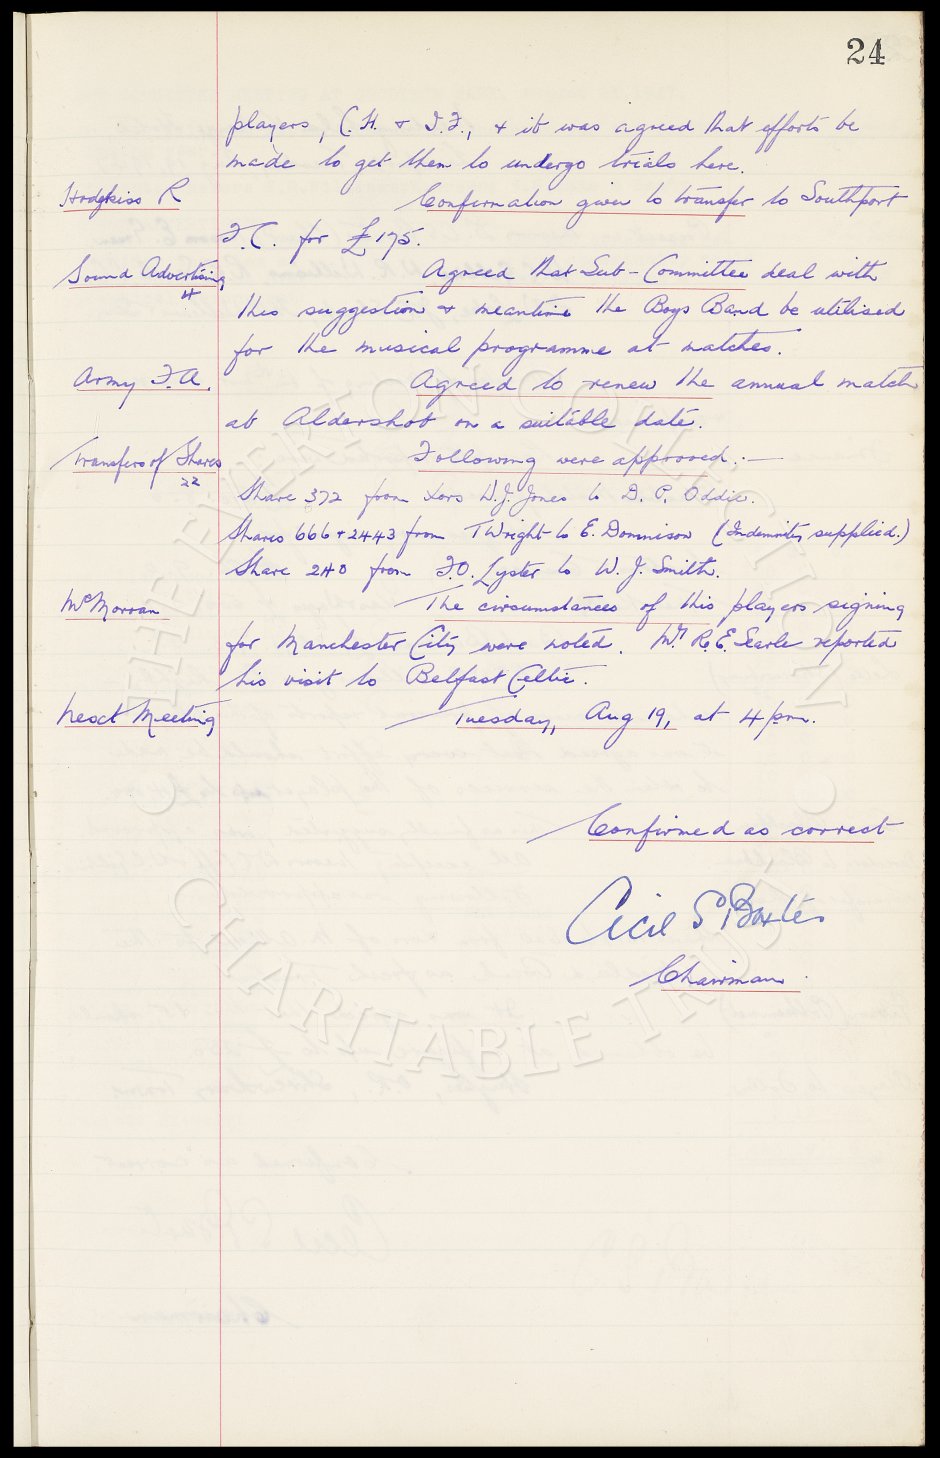 24
players, C.H. & O.F., & it was agreed that efforts be
made to get them to undergo trials here.
Hodgkiss R Confirmation given to transfer to Southport
F.C. for £175.
Sound Advertising 4 Agreed that Sub-Committee deal with
this suggestion & meantime the Boys Band be utilised
for the musical programme at matches.
Army F.A. Agreed to renew the annual match
at Aldershot on a suitable date.
Transfers of Shares 22 Following were approved:—
Share 372 from Xors W.J. Jones to D. P. Oddie.
Shares 666 & 2443 from T Wright to E. Donnison (Indemnity supplied.)
Share 240 from F.O. Lyster to W. J. Smith.
McMorran The circumstances of this players signing
for Manchester City were noted. Mr R.E. Searle reported
his visit to Belfast Celtic.
Next Meeting Tuesday, Aug 19, at 4 pm.
Confirmed as correct
Cecil S Baxter
Chairman
THE EVERTON COLLECTION
CHARITABLE TRUST